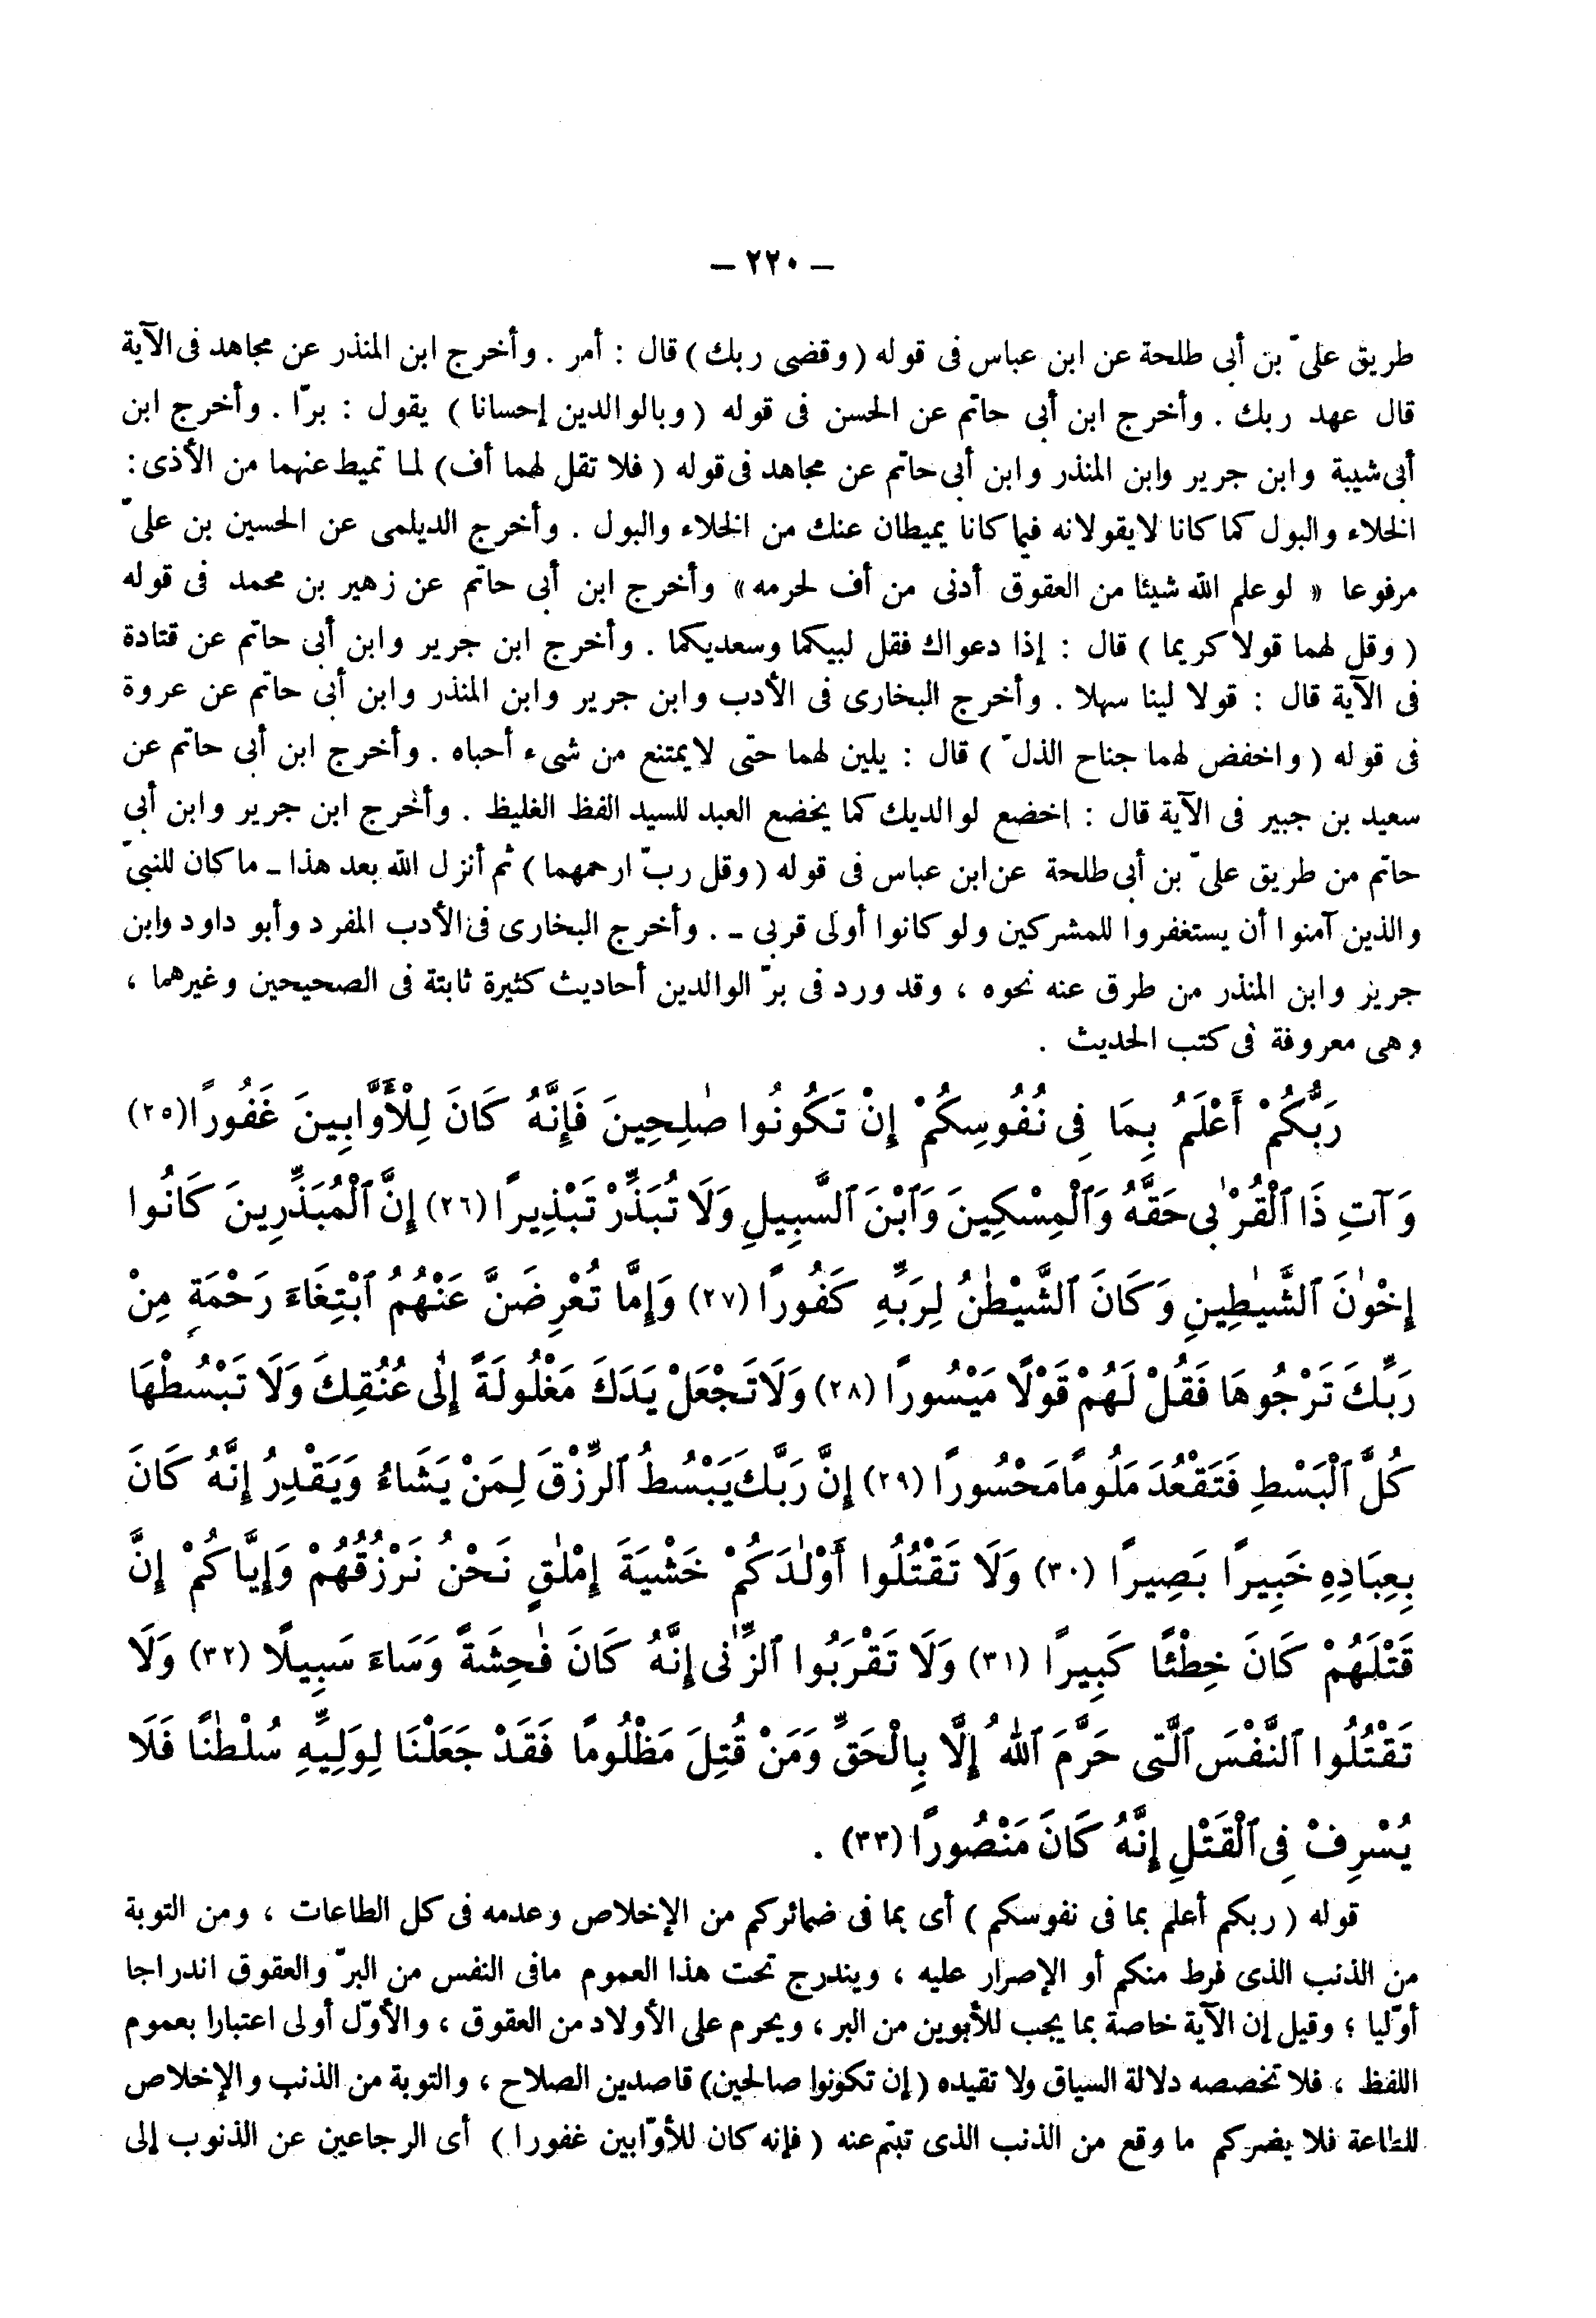 — ٢٢٠ —
طريق علىّ بن أبى طلحة عن ابن عباس فى قوله (وقضى ربك) قال : أمر . وأخرج ابن المنذر عن مجاهد فى الآية
قال عهد ربك . وأخرج ابن أبى حاتم عن الحسن فى قوله ( وبالوالدين إحسانا ) يقول : برّا . وأخرج ابن
أبى شيبة وابن جرير وابن المنذر وابن أبى حاتم عن مجاهد فى قوله ( فلا تقل لهما أف) لما تميط عنهما من الأذى :
الخلاء والبول كما كانا لا يقولانه فيما كانا يميطان عنك من الخلاء والبول . وأخرج الديلمى عن الحسين بن علىّ
مرفوعا « لو علم الله شيئا من العقوق أدنى من أف لحرمه » وأخرج ابن أبى حاتم عن زهير بن محمد فى قوله
( وقل لهما قولا كريما ) قال : إذا دعواك فقل لبيكما وسعديكما . وأخرج ابن جرير وابن أبى حاتم عن قتادة
فى الآية قال : قولا لينا سهلا . وأخرج البخارى فى الأدب وابن جرير وابن المنذر وابن أبى حاتم عن عروة
فى قوله ( واخفض لهما جناح الذلّ ) قال : يلين لهما حتى لا يمتنع من شىء أحباه . وأخرج ابن أبى حاتم عن
سعيد بن جبير فى الآية قال : اخضع لوالديك كما يخضع العبد للسيد الفظ الغليظ . وأخرج ابن جرير وابن أبى
حاتم من طريق علىّ بن أبى طلحة عن ابن عباس فى قوله (وقل ربّ ارحمهما ) ثم أنزل الله بعد هذا ـ ما كان للنبىّ
والذين آمنوا أن يستغفروا للمشركين ولو كانوا أولى قربى ـ . وأخرج البخارى فى الأدب المفرد وأبو داود وابن
جرير وابن المنذر من طرق عنه نحوه ، وقد ورد فى برّ الوالدين أحاديث كثيرة ثابتة فى الصحيحين وغيرهما ،
وهى معروفة فى كتب الحديث .
رَبُّكُمْ أَعْلَمُ بِمَا فِى نُفُوسِكُمْ إِنْ تَكُونُوا صٰلِحِينَ فَإِنَّهُ كَانَ لِلْأَوَّابِينَ غَفُورًا (٢٥)
وَآتِ ذَا ٱلْقُرْبٰى حَقَّهُ وَٱلْمِسْكِينَ وَٱبْنَ ٱلسَّبِيلِ وَلَا تُبَذِّرْ تَبْذِيرًا (٢٦) إِنَّ ٱلْمُبَذِّرِينَ كَانُوا
إِخْوٰنَ ٱلشَّيٰطِينِ وَكَانَ ٱلشَّيْطٰنُ لِرَبِّهِ كَفُورًا (٢٧) وَإِمَّا تُعْرِضَنَّ عَنْهُمُ ٱبْتِغَاءَ رَحْمَةٍ مِنْ
رَبِّكَ تَرْجُوهَا فَقُلْ لَهُمْ قَوْلًا مَيْسُورًا (٢٨) وَلَا تَجْعَلْ يَدَكَ مَغْلُولَةً إِلٰى عُنُقِكَ وَلَا تَبْسُطْهَا
كُلَّ ٱلْبَسْطِ فَتَقْعُدَ مَلُومًا مَحْسُورًا (٢٩) إِنَّ رَبَّكَ يَبْسُطُ ٱلرِّزْقَ لِمَنْ يَشَاءُ وَيَقْدِرُ إِنَّهُ كَانَ
بِعِبَادِهِ خَبِيرًا بَصِيرًا (٣٠) وَلَا تَقْتُلُوا أَوْلٰدَكُمْ خَشْيَةَ إِمْلٰقٍ نَحْنُ نَرْزُقُهُمْ وَإِيَّاكُمْ إِنَّ
قَتْلَهُمْ كَانَ خِطْئًا كَبِيرًا (٣١) وَلَا تَقْرَبُوا ٱلزِّنٰى إِنَّهُ كَانَ فٰحِشَةً وَسَاءَ سَبِيلًا (٣٢) وَلَا
تَقْتُلُوا ٱلنَّفْسَ ٱلَّتِى حَرَّمَ ٱللهُ إِلَّا بِالْحَقِّ وَمَنْ قُتِلَ مَظْلُومًا فَقَدْ جَعَلْنَا لِوَلِيِّهِ سُلْطٰنًا فَلَا
يُسْرِفْ فِى ٱلْقَتْلِ إِنَّهُ كَانَ مَنْصُورًا (٣٣) .
قوله ( ربكم أعلم بما فى نفوسكم ) أى بما فى ضمائركم من الإخلاص وعدمه فى كل الطاعات ، ومن التوبة
من الذنب الذى فرط منكم أو الإصرار عليه ، ويندرج تحت هذا العموم مافى النفس من البرّ والعقوق اندراجا
أوّليا ؛ وقيل إن الآية خاصة بما يجب للأبوين من البر ، ويحرم على الأولاد من العقوق ، والأوّل أولى اعتبارا بعموم
اللفظ ، فلا تخصصه دلالة السياق ولا تقيده (إن تكونوا صالحين) قاصدين الصلاح ، والتوبة من الذنب والإخلاص
للطاعة فلا يضركم ما وقع من الذنب الذى تبتم عنه ( فإنه كان للأوّابين غفورا ) أى الرجاعين عن الذنوب إلى